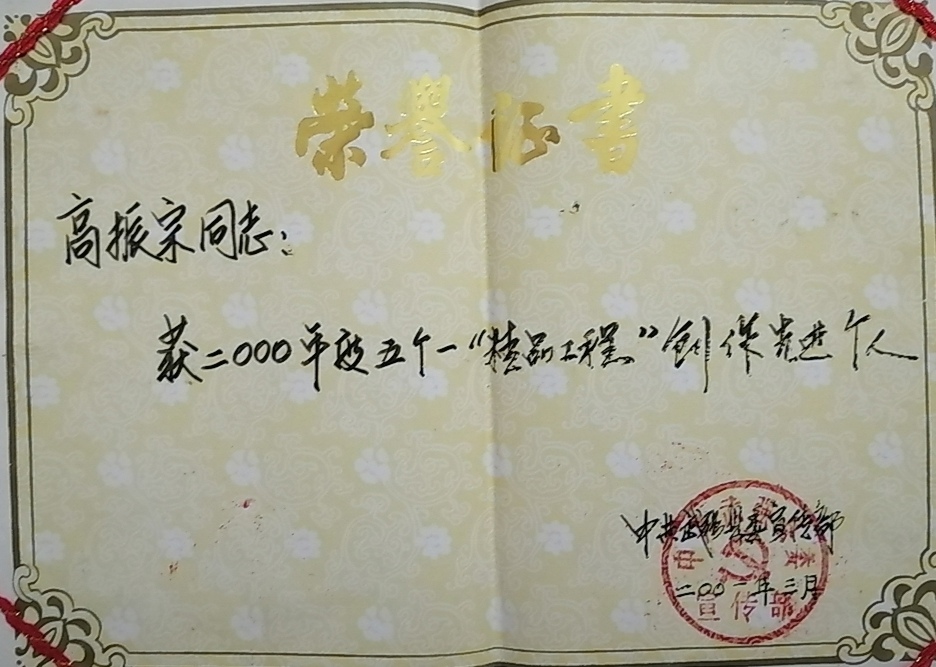 荣誉证书
高振宗同志：
获二000年度五个一“精品工程”创作先进个人
中共武强县委宣传部
二00一年三月
宣传部